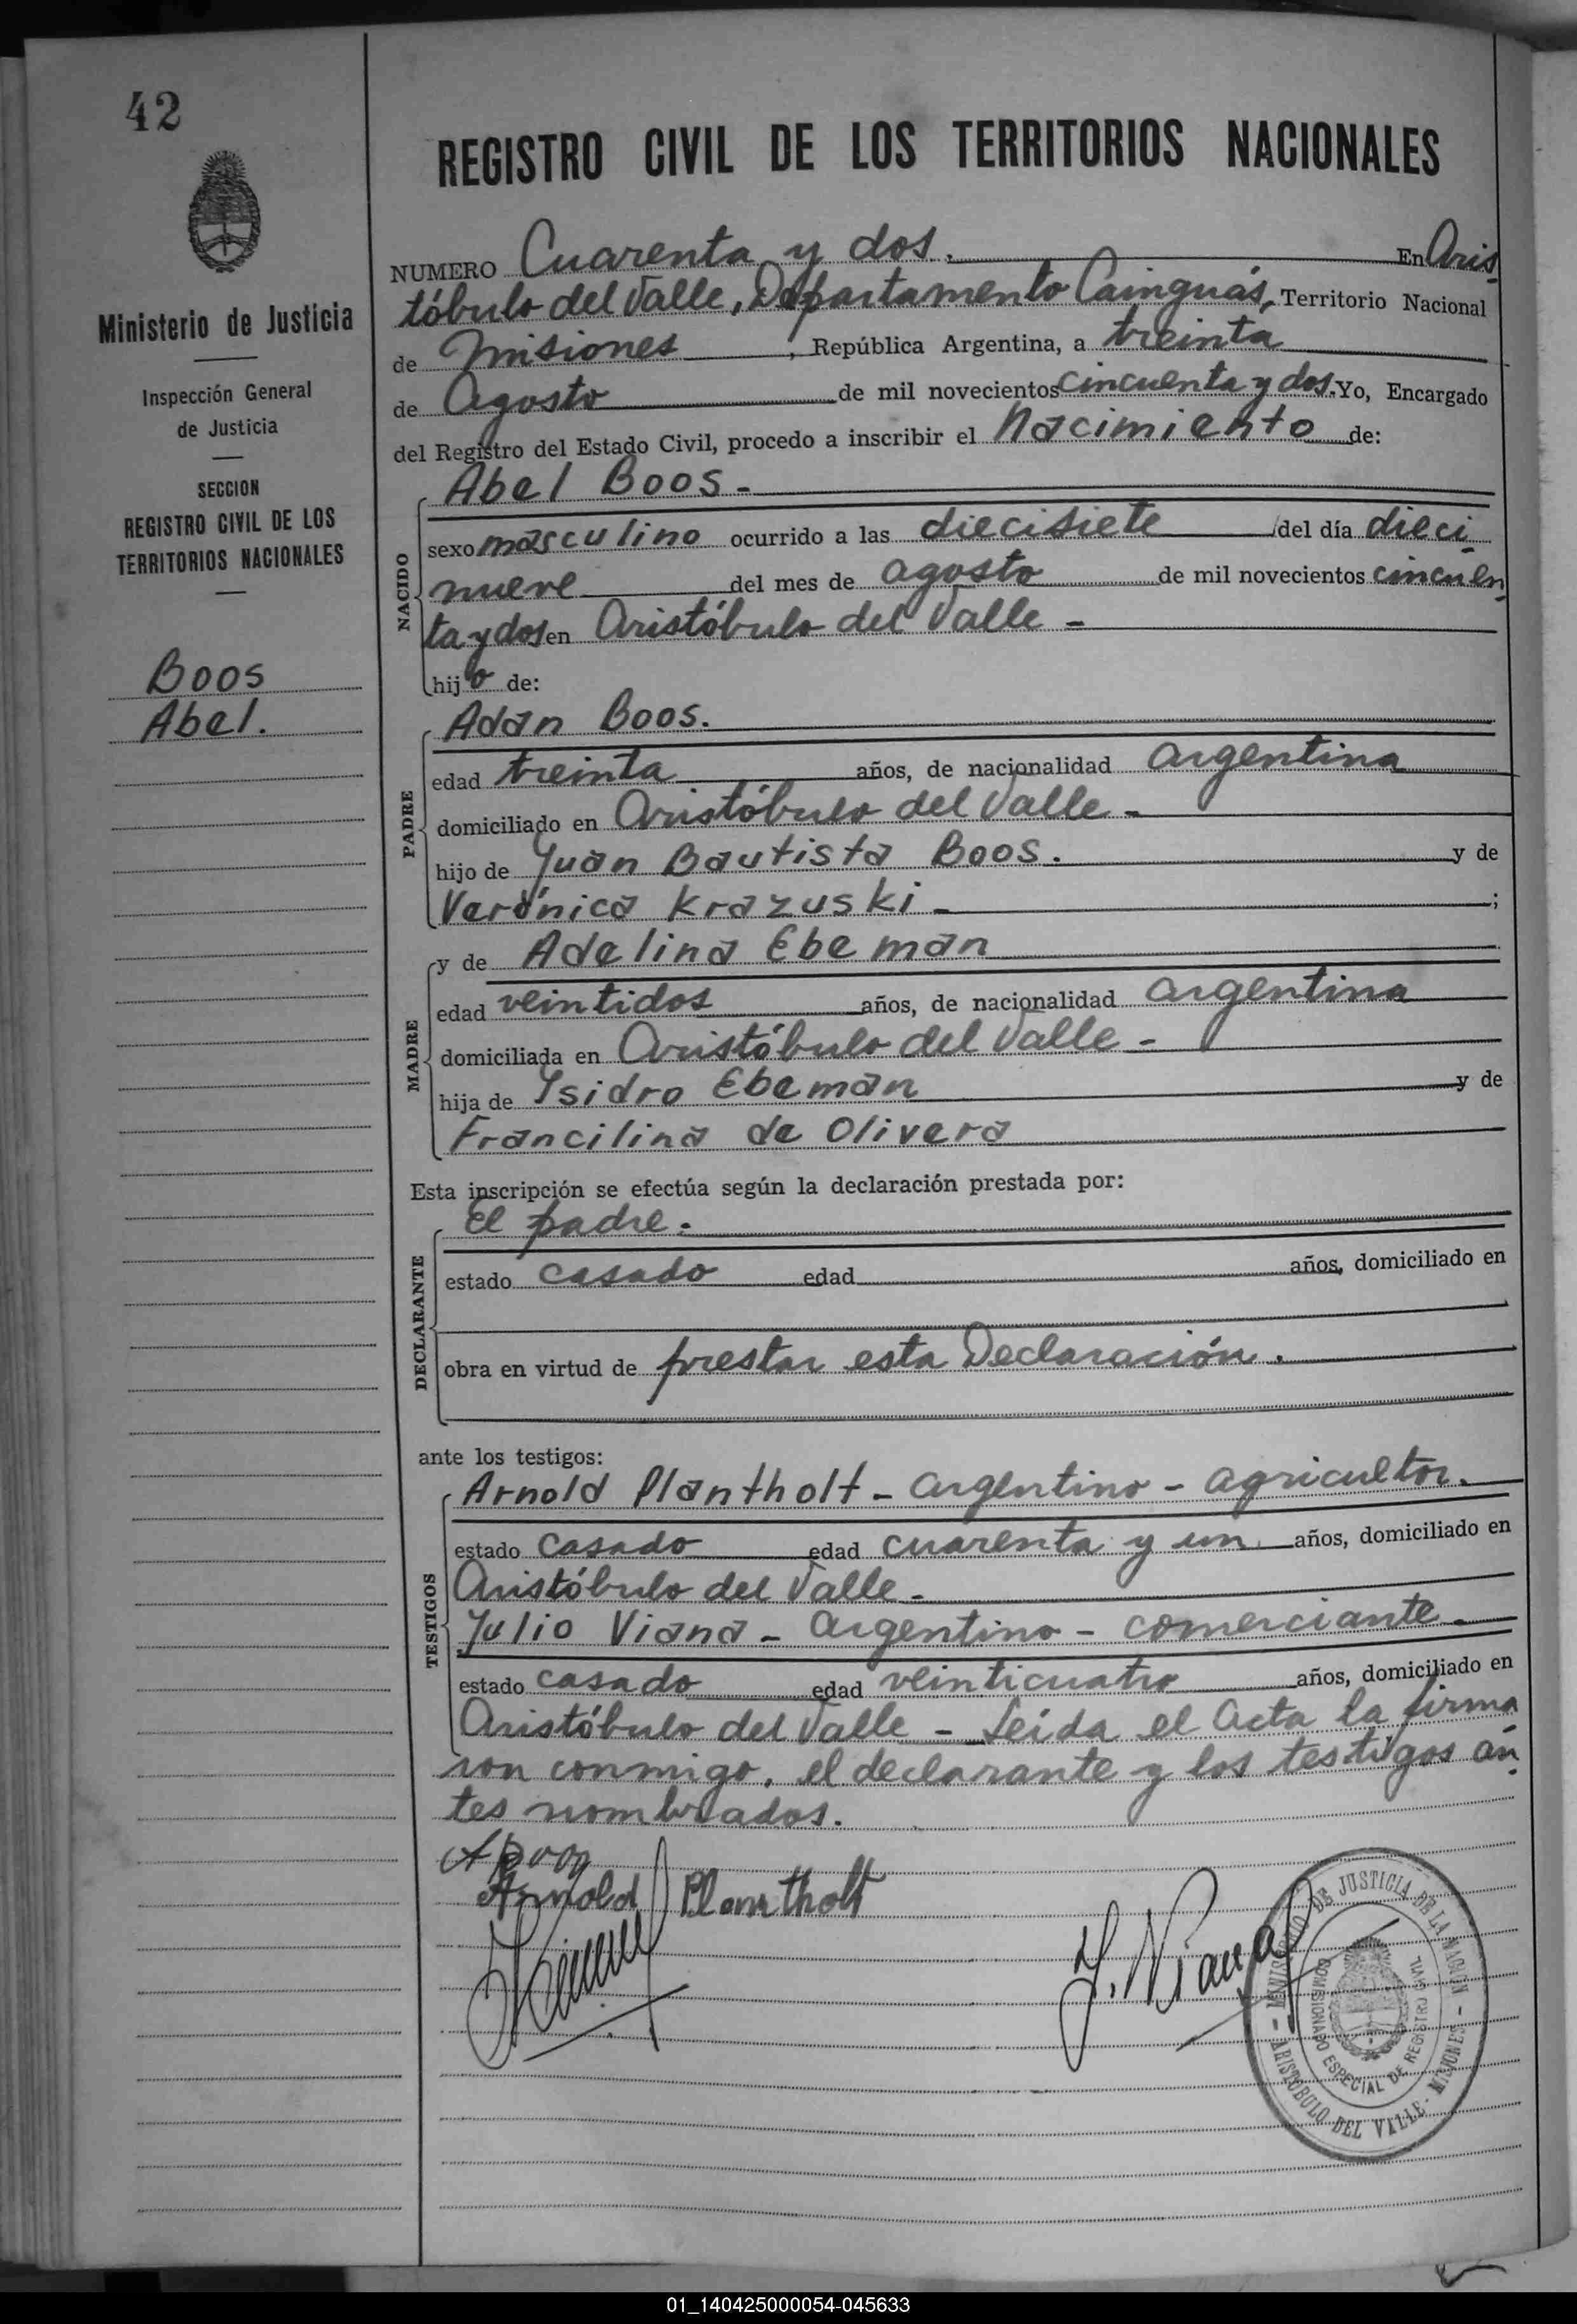 42
Ministerio de Justicia
Inspección General
de Justicia
SECCION
REGISTRO CIVIL DE LOS
TERRITORIOS NACIONALES
Boos
Abel.
REGISTRO CIVIL DE LOS TERRITORIOS NACIONALES
NUMERO Cuarenta y dos. En Aris
tóbulo del Valle, Departamento Cainguás, Territorio Nacional
de Misiones, República Argentina, a treinta
de Agosto de mil novecientos cincuenta y dos. Yo, Encargado
del Registro del Estado Civil, procedo a inscribir el Nacimiento de:
NACIDO
Abel Boos.-
sexo masculino ocurrido a las diecisiete del día dieci
nueve del mes de agosto de mil novecientos cincuen
ta y dos en Aristóbulo del Valle -
hijo de:
PADRE
Adan Boos.
edad treinta años, de nacionalidad argentina
domiciliado en Aristóbulo del Valle -
hijo de Juan Bautista Boos. y de
Verónica Krazuski - ;
MADRE
y de Adelina Ebeman
edad veintidos años, de nacionalidad argentina
domiciliada en Aristóbulo del Valle -
hija de Isidro Ebeman y de
Francilina de Olivera
Esta inscripción se efectúa según la declaración prestada por:
DECLARANTE
El padre.
estado casado edad años, domiciliado en
obra en virtud de prestar esta Declaración.
ante los testigos:
TESTIGOS
Arnold Plantholt - argentino - agricultor.
estado casado edad cuarenta y un años, domiciliado en
Aristóbulo del Valle -
Julio Viana - argentino - comerciante -
estado casado edad veinticuatro años, domiciliado en
Aristóbulo del Valle - Leida el Acta la firma
ron conmigo, el declarante y los testigos an
tes nombrados.
Arnold Plantholt
J. Viana
MINISTERIO DE JUSTICIA DE LA NACION
COMISIONADO ESPECIAL DE REGISTRO CIVIL
- ARISTOBULO DEL VALLE - MISIONES -
01_140425000054-045633